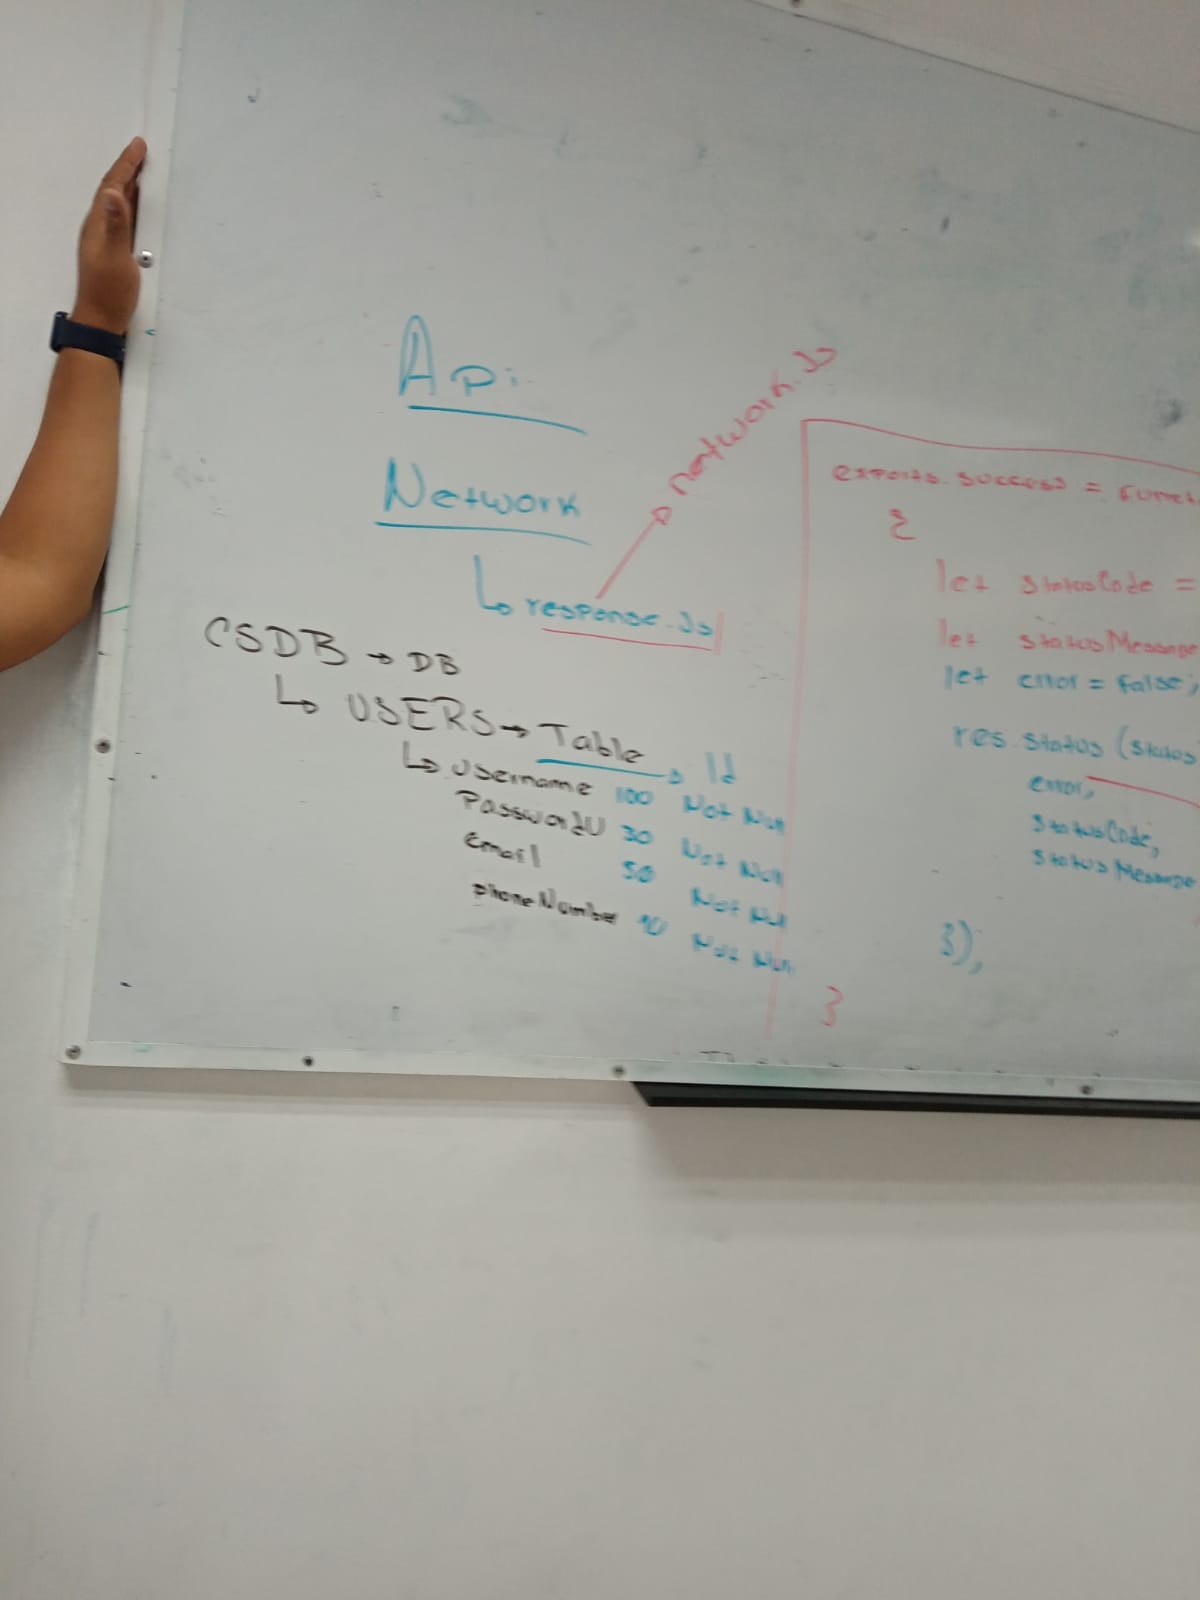 Api
Network
response.Js
network.Js
CSDB → DB
USERS → Table
Id
username 100 Not Null
PasswordU 30 Not Null
Email 50 Not Null
phoneNumber 10 Not Null
exports.success = funct
{
let statusCode =
let statusMessage
let error = false;
res.status (status
error,
statusCode,
statusMessage
});
}